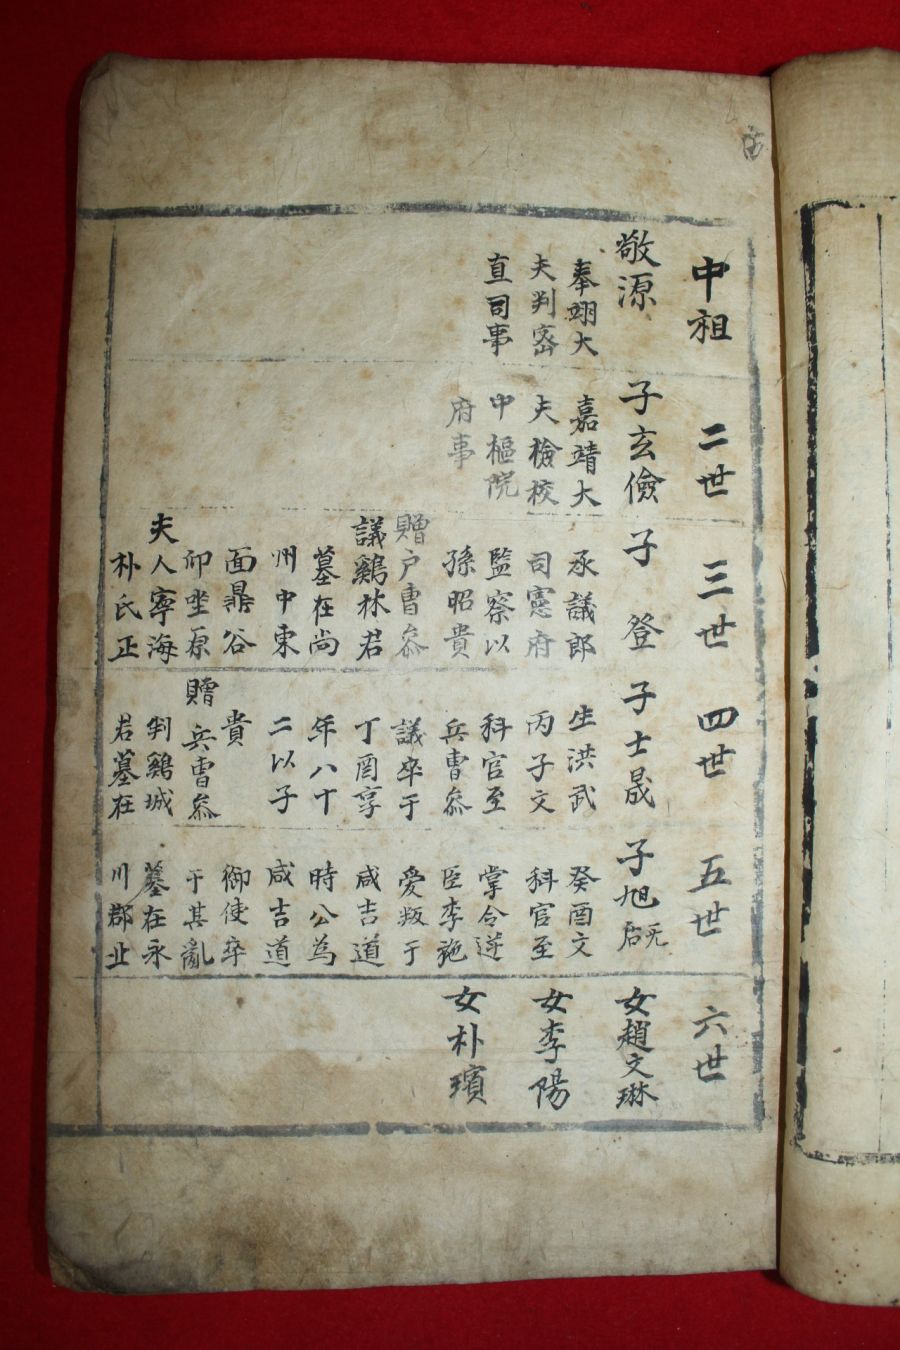 中祖
敬源
奉翊大
夫判密
直司事
二世
子玄儉
嘉靖大
夫檢校
中樞院
府事
三世
子登
承議郎
司憲府
監察以
孫昭貴
贈戶曹叅
議鷄林君
墓在尙
州中東
面鼎谷
卯坐原
夫人寧海
朴氏正
四世
子士晟
生洪武
丙子文
科官至
兵曹叅
議卒于
丁酉享
年八十
二以子
貴
贈兵曹叅
判鷄城
君墓在
五世
子旭无后
癸酉文
科官至
掌令逆
臣李施
愛叛于
咸吉道
時公為
咸吉道
御使卒
于其亂
墓在永
川郡北
六世
女趙文琳
女李陽
女朴璸